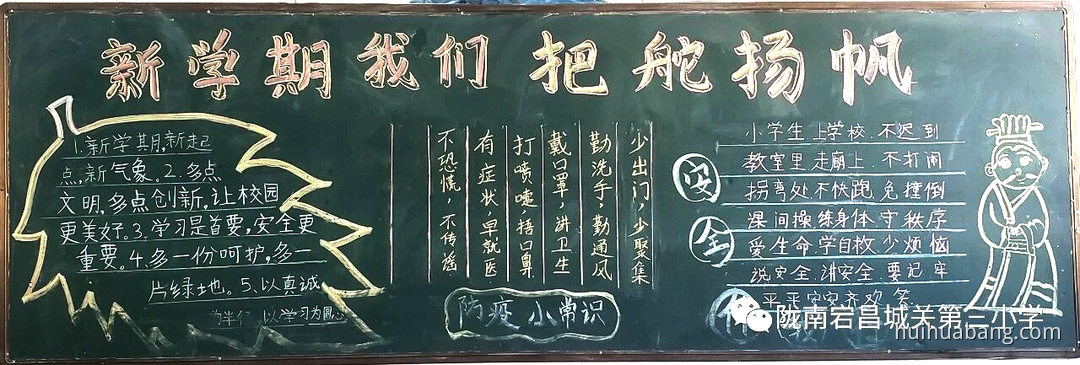 新学期我们把舵扬帆
1.新学期,新起
点,新气象。2.多点
文明,多点创新,让校园
更美好。3.学习是首要,安全更
重要。4.多一份呵护,多一
片绿地。5.以真诚
为半径,以学习为圆心
少出门,少聚集
勤洗手,勤通风
戴口罩,讲卫生
打喷嚏,捂口鼻
有症状,早就医
不恐慌,不传谣
防疫小常识
安
全
小学生 上学校.不迟到
教室里 走廊上.不打闹
拐弯处 不快跑 免撞倒
课间操 练身体 守秩序
爱生命 学自救 少烦恼
说安全 讲安全 要记牢
陇南宕昌城关第三小学
huihuabang.com